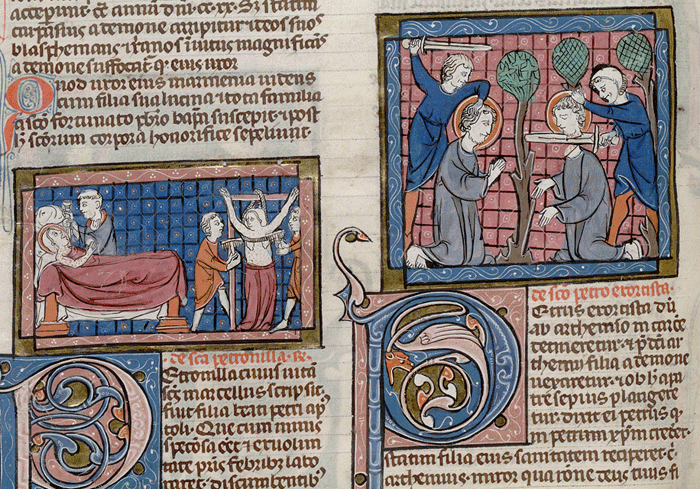 carpasius a demone carripitur. ⁊ deos suos
blasphemans. ⁊ sc̄anos inuitus magnificās
a demone suffocat̃ q̃ eius uxor
Quod uxor eius marmenia uidens
cum filia sua lucina ⁊ tota familia
a sc̄o fortunato pb̄ro bap̃m suscepit. ⁊ post
h̄ sc̄orum corpora honorifice sepeliunt.
de sc̄a petronilla.
Petronilla cuius uitā
sc̄s marcellus scripsit
fuit filia beati petri ap̄
toli. Que cum nimis
speciosa eēt ⁊ ex uolun
tate pr̄is febribꝰ labo
raret. discumbentibꝫ
de sc̄o petro exorcista.
Petrus exorcista dū
ab archemio in carce
detineretur. ar
themii filia a demone
uexaretur. ⁊ ob h̄
tre sepius plangere
tur. dixit ei petrus q̄
in petrum xp̄m creder.
statim filia eius sanitatem reciperet. c̄
archemius. miror deus tuus si